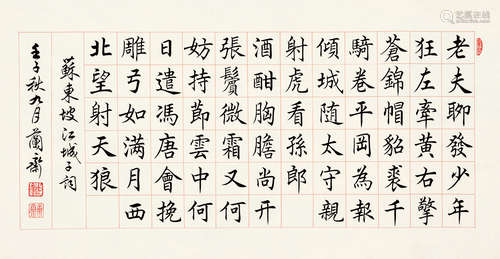 老夫聊發少年
狂左牽黃右擎
蒼錦帽貂裘千
騎卷平岡為報
傾城隨太守親
射虎看孫郎
酒酣胸膽尚开
張鬢微霜又何
妨持節雲中何
日遣馮唐會挽
雕弓如滿月西
北望射天狼
蘇東坡江城子詞
壬子秋九月蘭齋